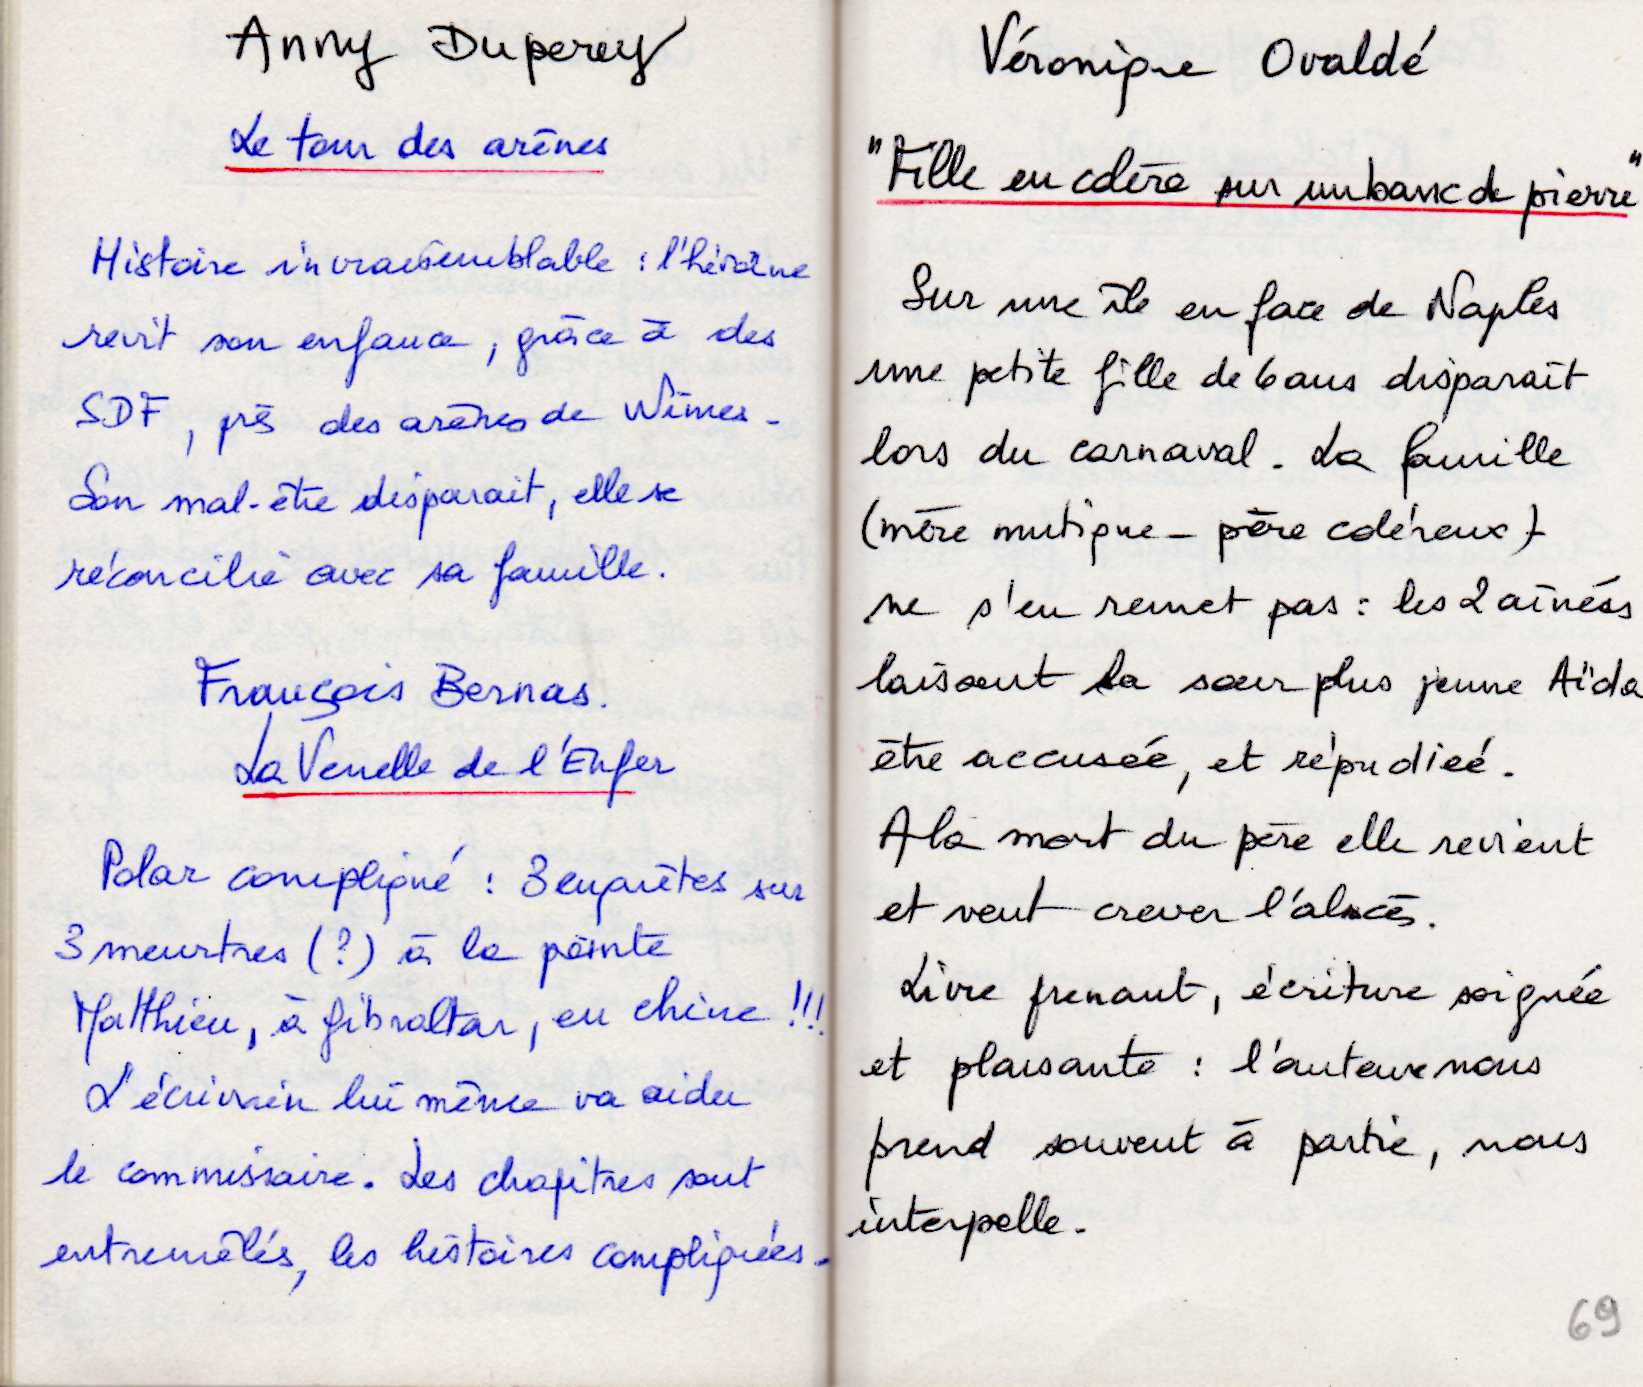 Anny Duperey
Le tour des arènes
Histoire invraisemblable : l'héroïne
revit son enfance, grâce à des
SDF, près des arènes de Nîmes.
Son mal-être disparait, elle se
réconcilie avec sa famille.
François Bernas.
La Venelle de l'Enfer
Polar compliqué : 3 enquêtes sur
3 meurtres (?) à la pointe
Matthieu, à Gibraltar, en Chine !!!
L'écrivain lui même va aider
le commissaire. Les chapitres sont
entremêlés, les histoires compliquées.
Véronique Ovaldé
"Fille en colère sur un banc de pierre"
Sur une île en face de Naples
une petite fille de 6 ans disparaît
lors du carnaval. La famille
(mère mutique - père coléreux)
ne s'en remet pas : les 2 aînées
laissent la sœur plus jeune Aïda
être accusée, et répudieé.
A la mort du père elle revient
et veut crever l'abcès.
Livre prenant, écriture soignée
et plaisante : l'auteure nous
prend souvent à partie, nous
interpelle.
69